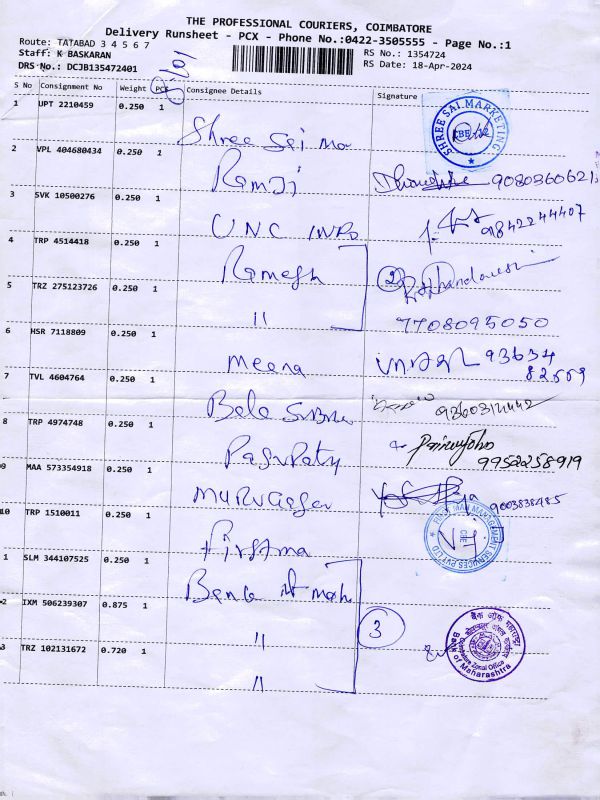 THE PROFESSIONAL COURIERS, COIMBATORE
Delivery Runsheet - PCX - Phone No.:0422-3505555 - Page No.:1
Route: TATABAD 3 4 5 6 7
RS No.: 1354724
Staff: K BASKARAN
RS Date: 18-Apr-2024
DRS No.: DCJB135472401
S No Consignment No Weight PCS Consignee Details Signature
1 UPT 2210459 0.250 1 Shree Sai Ma
SHREE SAI MARKETING
CBE
2 VPL 404680434 0.250 1 Ramji 9080360621
3 SVK 10500276 0.250 1 UNC 9842244407
4 TRP 4514418 0.250 1 Ramesh 2
5 TRZ 275123726 0.250 1 " 7708095050
6 HSR 7118809 0.250 1 Meena 93634
82509
7 TVL 4604764 0.250 1 Bala
8 TRP 4974748 0.250 1 Pasupaty 9952258919
09 MAA 573354918 0.250 1 Murugesan 9003838485
10 TRP 1510011 0.250 1 Firstma
MANAGEMENT SERVICES PVT LTD
CBE
1 SLM 344107525 0.250 1
2 IXM 506239307 0.875 1 " 3
बैंक ऑफ महाराष्ट्र
Zonal Office
Bank of Maharashtra
3 TRZ 102131672 0.720 1 "